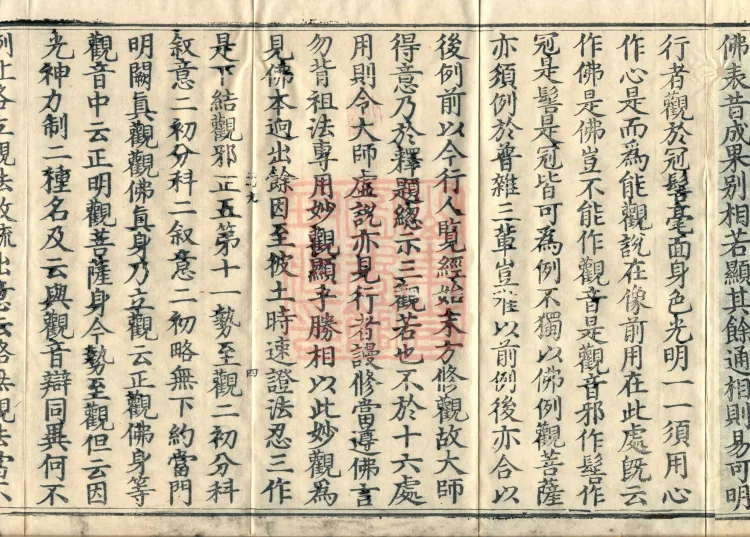 佛表昔成果別相若顯其餘通相則易可明
行者觀於冠髻毫面身色光明一一須用心
作心是而為能觀說在像前用在此處既云
作佛是佛豈不能作觀音是觀音邪作髻作
冠是髻是冠皆可為例不獨以佛例觀菩薩
亦須例於普雜三輩豈唯以前例後亦合以
後例前以今行人覽經始末方修觀故大師
得意乃於釋題緫示三觀若也不於十六處
用則令大師虛說亦見行者謾修當遵佛言
勿背祖法專用妙觀顯乎勝相以此妙觀為
見佛本迴出餘因至彼土時速證法忍三作
是下結觀邪正五第十一勢至觀二初分科
敘意二初分科二敘意二初略無下約當門
明闕真觀觀佛真身乃立觀云正觀佛身等
觀音中云正明觀菩薩身今勢至觀但云因
光神力制二種名及云與觀音辯同異何不